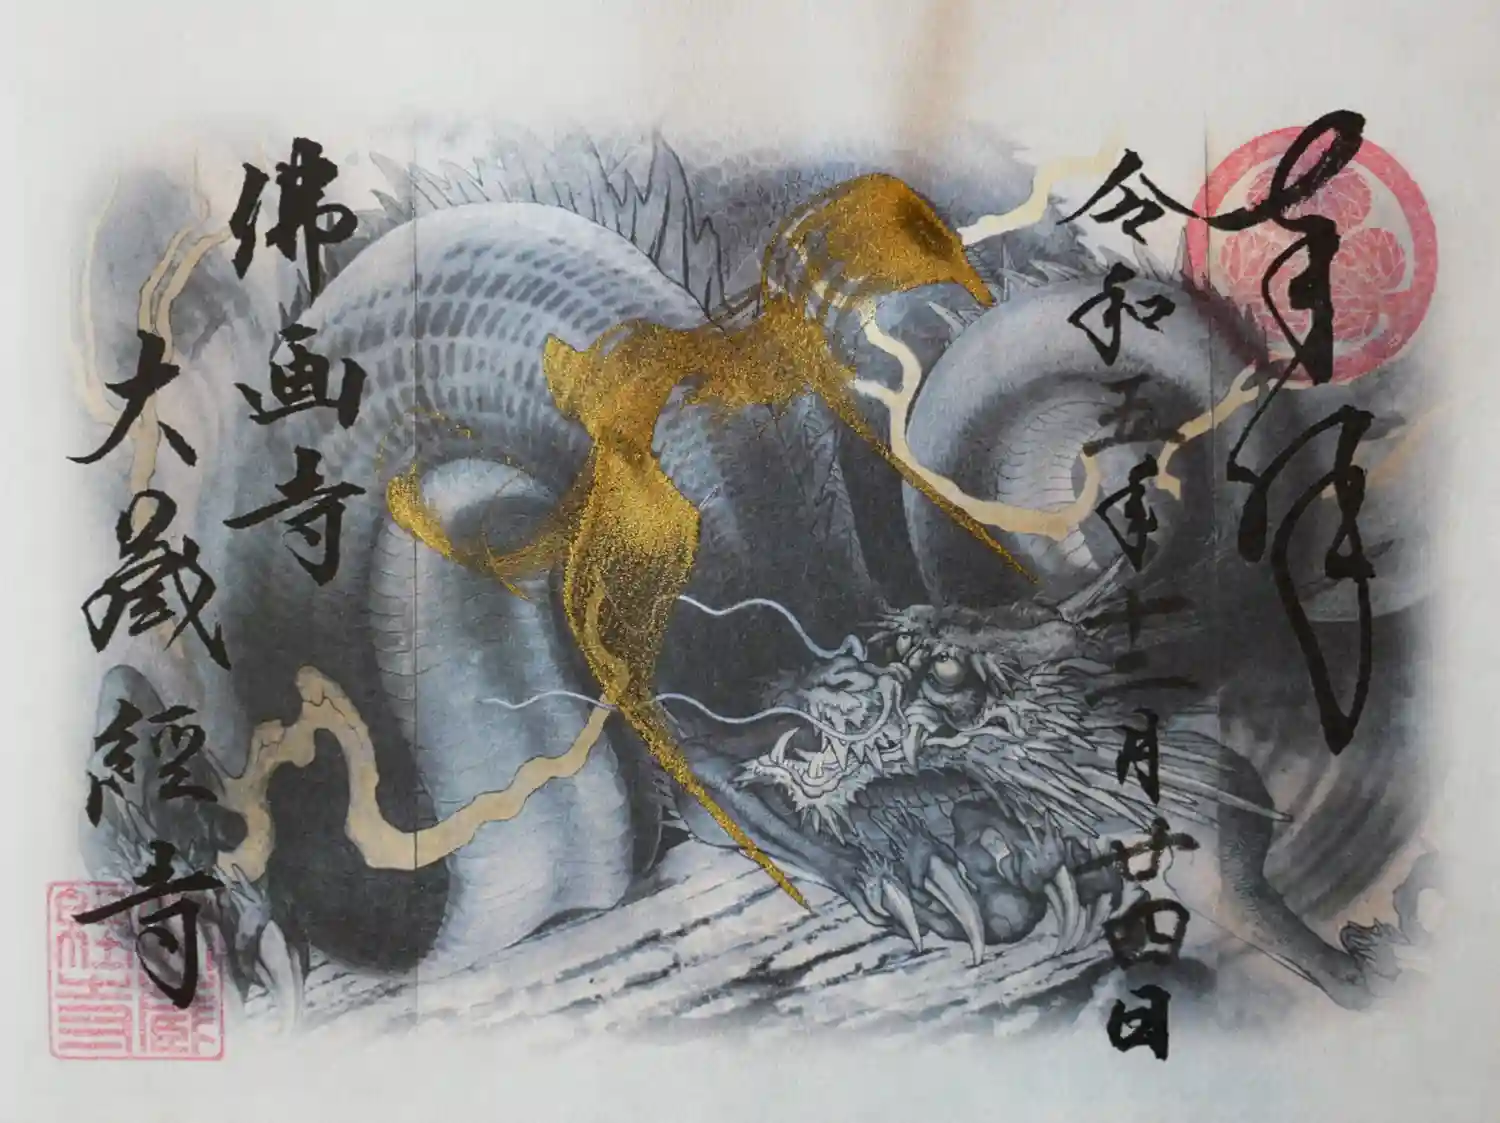 奉拝
令和五年十二月廿四日
佛画寺
大蔵經寺